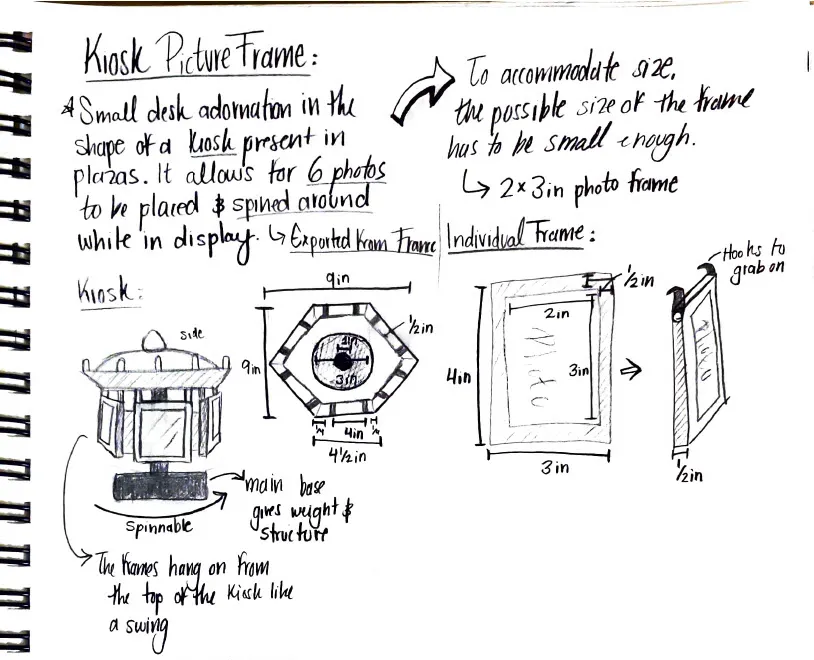 Kiosk Picture Frame:
* Small desk adornation in the
shape of a kiosk present in
plazas. It allows for 6 photos
to be placed & spined around
while in display. ↳ Exported from Frame
To accommodate size,
the possible size of the frame
has to be small enough.
↳ 2×3in photo frame
Kiosk:
side
Spinnable
main base
gives weight &
structure
The frames hang on from
the top of the kiosk like
a swing
9in
9in
1/2in
3in
4in
4 1/2in
Individual Frame:
1/2in
2in
3in
4in
Photo
3in
Hooks to
grab on
Photo
1/2in